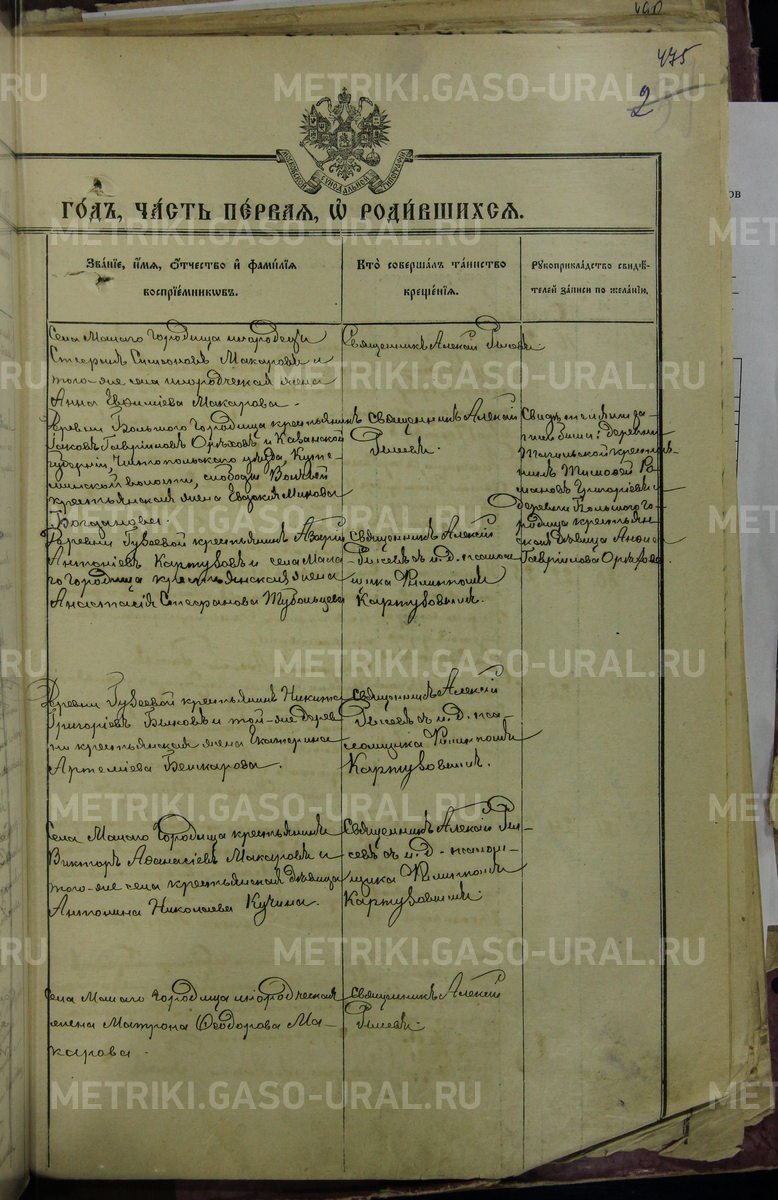 475
2
METRIKI.GASO-URAL.RU
МОСКОВСКОЙ СѴНОДАЛЬНОЙ ТИПОГРАФІИ
ГО́ДЪ, ЧА́СТЬ ПЕ́РВАЯ, Ѡ҆ РОДИ́ВШИХСЯ.
Зва́нїе, и҆́мя, о҆́тчество и҆ фами́лїя
воспрїе́мникѡвъ.
Кто̀ соверша́лъ та́инство
креще́нїя.
Рꙋкоприкла́дство свидѣ́-
телей за́писи по жела́нїю.
Села Малаго Городища инородецъ
Симеоновъ Макаровъ и
того-же села инородческая жена
Анна Евфиміева Макарова.
Священникъ Алексій
Деревни Большого Городища крестьянинъ
Іаковъ Гавріиловъ Орѣховъ и Казанской
губерніи, Чистопольскаго уѣзда,
волости, слободы
крестьянская жена Евдокія
Богданова.
Священникъ Алексій
Свидѣтелями за-
писи были: деревни
крестья-
нинъ Тимофей Ро-
мановъ Григорьевъ и
деревни Большого Го-
родища крестьян-
ская дѣвица Анфиса
Гавріилова Орѣхова.
Деревни Губаевой крестьянинъ
Антоніевъ Картузовъ и села Мала-
го Городища крестьянская жена
Анастасія Стефанова
Священникъ Алексій
съ и. д. псалом-
щика Филиппомъ
Картузовымъ.
Деревни Губаевой крестьянинъ Никита
Григоріевъ Быковъ и той-же дерев-
ни крестьянская жена Екатерина
Артеміева
Священникъ Алексій
съ и. д. пса-
ломщика Филиппомъ
Картузовымъ.
Села Малаго Городища крестьянинъ
Викторъ Аѳанасіевъ Макаровъ и
того-же села крестьянская дѣвица
Антонина Николаева Кучина.
Священникъ Алексій
съ и. д. псалом-
щика Филиппомъ
Картузовымъ.
Села Малаго Городища инородческая
жена Матрона Ѳеодорова Ма-
карова.
Священникъ Алексій